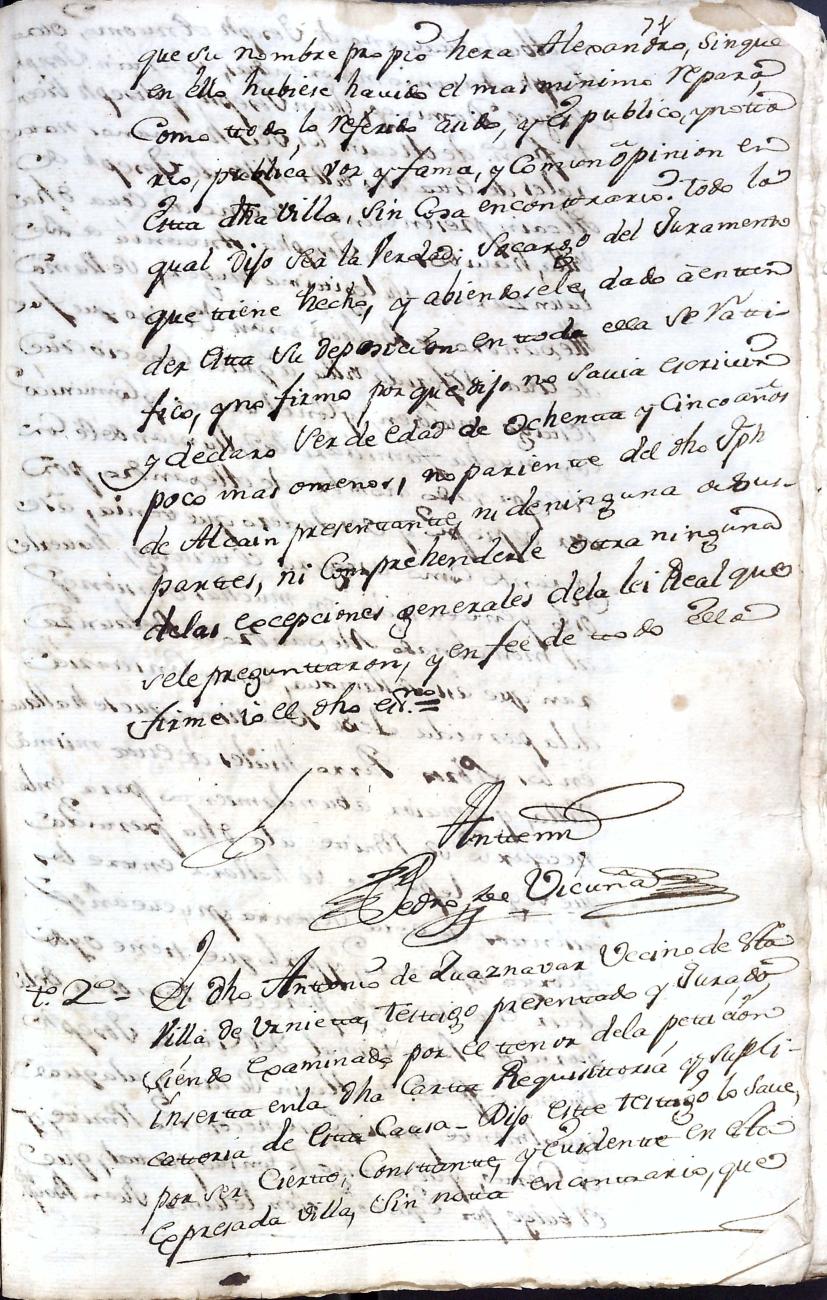 que su nombre propio hera Alexandro, sin que
en ello hubiese havido el mas minimo reparo,
Como ttodo lo referido asido, y es publico, y notto
rio, publica voz y fama, y Comun opinion en
Estta dha Villa, sin Cosa en conttrario. Todo lo
qual Dijo sea la Verdad, socargo del Juramento
que ttiene hecho, y abiendosele dado a entten
der Estta su deposicion en ttoda ella se ratti-
fico, y no firmo por que dijo no savia escrivir
y declaro ser de edad de Ochentta y Cinco años
poco mas omenos, no parientte del dho Jph
de Alcain presenttante, ni de ninguna de sus
parttes, ni Comprehenderle ottra ninguna
delas excepciones generales dela lei Real que
sele preguntaron, y en fee de ttodo ello
firme io el dho essno =
Antte mi
Pedro de Vicuña
to. 2o = El dho Anttonio de Zuaznavar Vecino de Esta
Villa de Urnietta, Testtigo presentado y Jurado
siendo examinado por el ttenor dela petticion
insertta enla dha Cartta Requisittoria y supli-
cattoria de Estta Causa - Dijo Estte testtigo lo save,
por ser Ciertto, Consttantte, y evidentte en Esta
Expresada villa, sin nota en conttrario, que